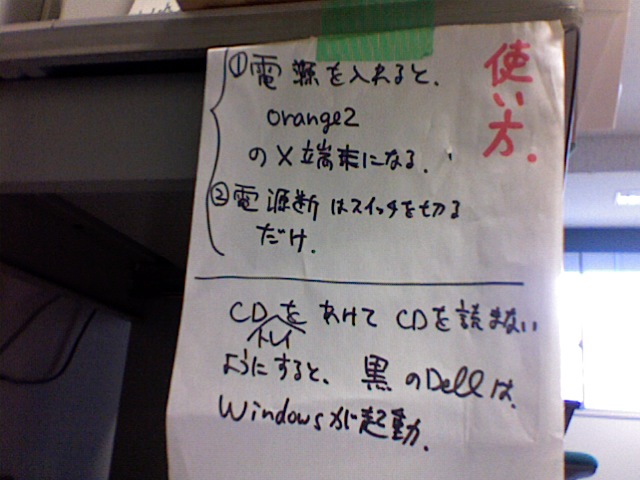 使い方.
①電源を入れると、
orange2
のX端末になる.
②電源断はスイッチを切る
だけ.
CDトレイをあけてCDを読まない
ようにすると、黒のDellは、
Windowsが起動.